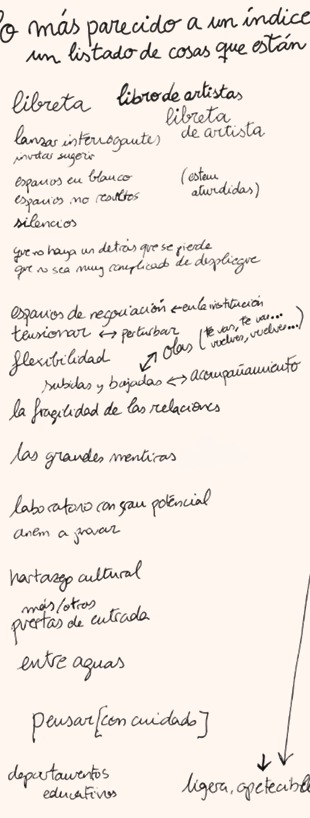 lo más parecido a un índice
un listado de cosas que están
libreta libro de artistas
libreta
de artista
lanzar interrogantes)
invitar sugerir
espacios en blanco (estem
espacios no resueltos aturdidas)
silencios
que no haya un detrás que se pierde
que no sea muy complicado de despliegue
espacios de negociación ← en la institución
tensionar ↔ perturbar
flexibilidad ↗ olas (te vas, te vas...
vuelves, vuelves...)
subidas y bajadas ↔ acompañamiento
la fragilidad de las relaciones
las grandes mentiras
laboratorio con gran potencial
anem a provar
hartazgo cultural
más/otras
puertas de entrada
entre aguas
pensar [con cuidado]
departamentos
educativos
ligera, apetecible